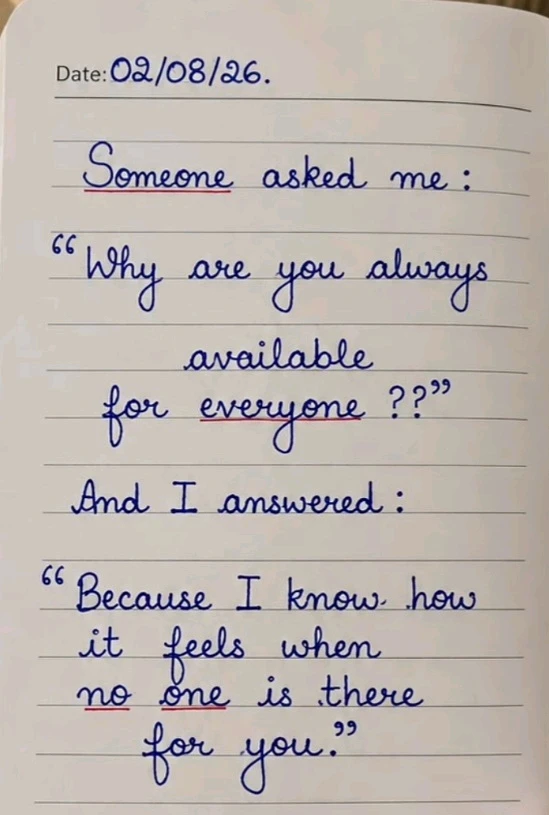 Date: 02/08/26.
Someone asked me :
“Why are you always
available
for everyone ??”
And I answered :
“Because I know how
it feels when
no one is there
for you.”